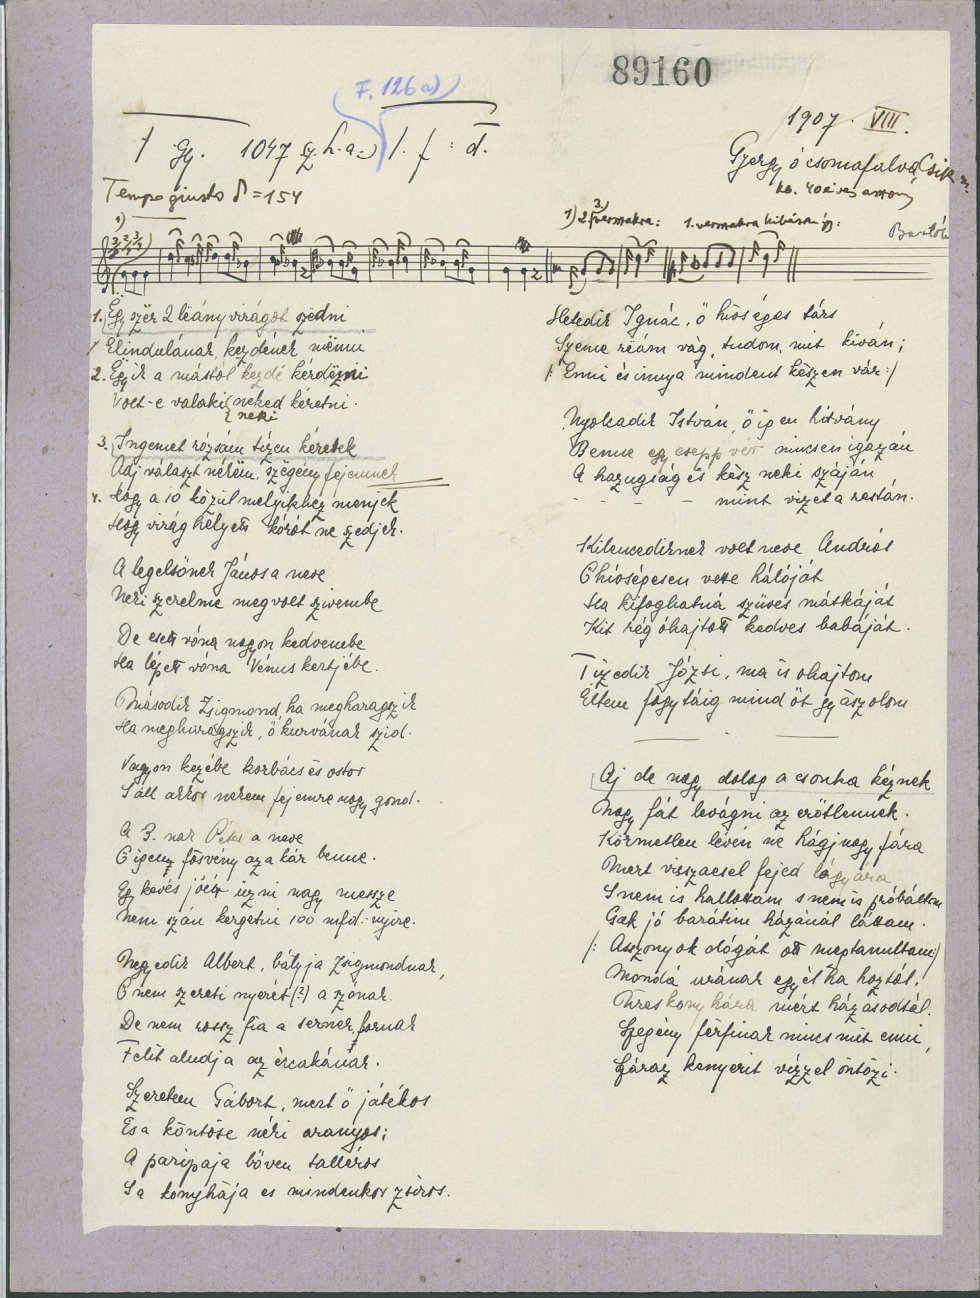 89160
F. 126 a)
1907. VIII.
Gy. 1047
Gyergyócsomafalva, Csík m.
kb. 40 éves asszony
Tempo giusto = 154
1) 2. 3. versszakra: 1. versszakra
Bartók
1. Egyszër 2 lëány virágot szëdni
Elindulának, kezdének mënni
2. Ëgyik a mástól kezdé kérdëzni
Volt-e valaki neked kéretni.
neki
3. Ingemet rózsám tízen kéretek
Adj választ nékëm, szëgény fejemnek
4. Hogy a 10 közül melyikhëz menjek
Hogy virág helyett kórót ne szedjek.
A legelsőnek János a neve
Neki szerelme megvolt szivembe
De esett vóna nagyon kedvembe
Ha lépett vóna Vénus kertjébe.
Második Zsigmond, ha megharagszik
Ha megharagszik, ő kurvának szid.
Vagyon kezébe korbács és ostor
S áll akkor nékem fejemre nagy gond.
A 3.nak Péter a neve
Ő igenn fösvény az a kár benne.
Egy kevés jóér űzni nagy messze
Nem szán kergetni 100 mfd.
Negyedik Albert, bátyja Zsigmondnak,
Ő nem szereti nyerét (?) a szónak.
De nem rossz fia a
Felit aludja az éccakának.
Szeretem Gábort, mert ő játékos
És a köntöse néki aranyos;
A paripája bőven talléros
S a konyhája es mindenkor zsíros.
Hetedik Ignác, ő hűséges társ
Szeme reám vág, tudom, mit kíván;
/: Enni és innya mindent készen vár :/
Nyolcadik István, ő ipen hitvány
Benne egy csepp vér nincsen igazán
A hazugság és kész neki száján
- - - mint vizet a rostán.
Kilencediknek volt neve András
Ő hűségesen vette hálóját
Ha kifoghatná szüves mátkáját
Kit rég óhajtott kedves babáját.
Tizedik Józsi, ma is ohajtom
Éltem fogytáig mind őt gyászolom
Aj de nagy dolog a csonka kéznek
Nagy fát levágni az erőtlennek.
Körmetlen lévén ne hágj nagy fára
Mert visszaesel fejed lágyára
S nem is hallottam s nem is próbáltam
Csak jó barátim házánál láttam.
/: Asszonyok dógát ott meptanultam :/
Mondá urának egyél ha hoztál,
Üres konyhára mért házasodtál.
Szegény férfinak nincs mit enni,
Száraz kenyerit vízzel öntözi.